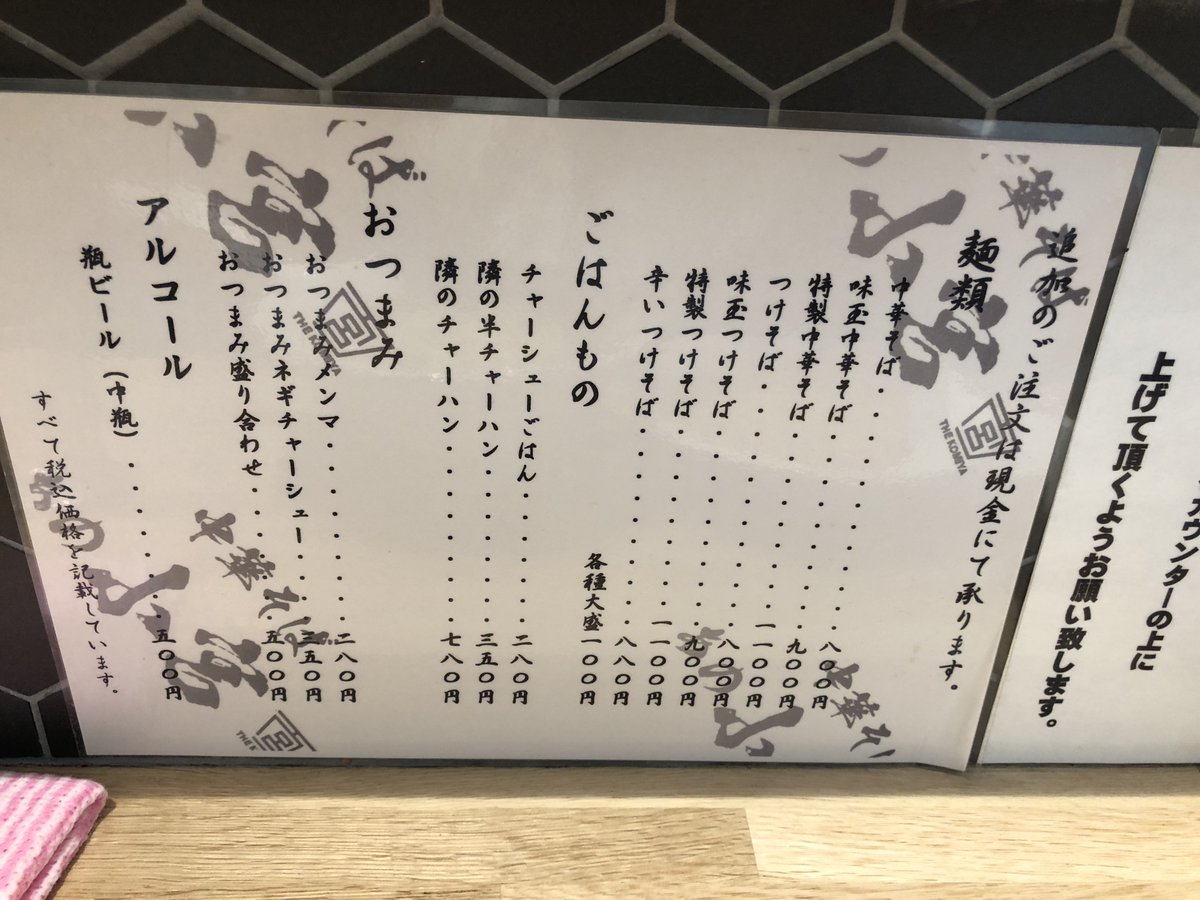 カウンターの上に
上げて頂くようお願い致します。
追加のご注文は現金にて承ります。
麺類
中華そば・・・・・・・・・・八〇〇円
味玉中華そば・・・・・・・・九〇〇円
特製中華そば・・・・・・・・一一〇〇円
つけそば・・・・・・・・・・八〇〇円
味玉つけそば・・・・・・・・九〇〇円
特製つけそば・・・・・・・・一一〇〇円
辛いつけそば・・・・・・・・八八〇円
各種大盛一〇〇円
ごはんもの
チャーシューごはん・・・・・二八〇円
隣の半チャーハン・・・・・・三五〇円
隣のチャーハン・・・・・・・七八〇円
おつまみ
おつまみメンマ・・・・・・・二八〇円
おつまみネギチャーシュー・・三五〇円
おつまみ盛り合わせ・・・・・五〇〇円
アルコール
瓶ビール(中瓶)・・・・・・五〇〇円
すべて税込価格を記載しています。
THE KOMIYA